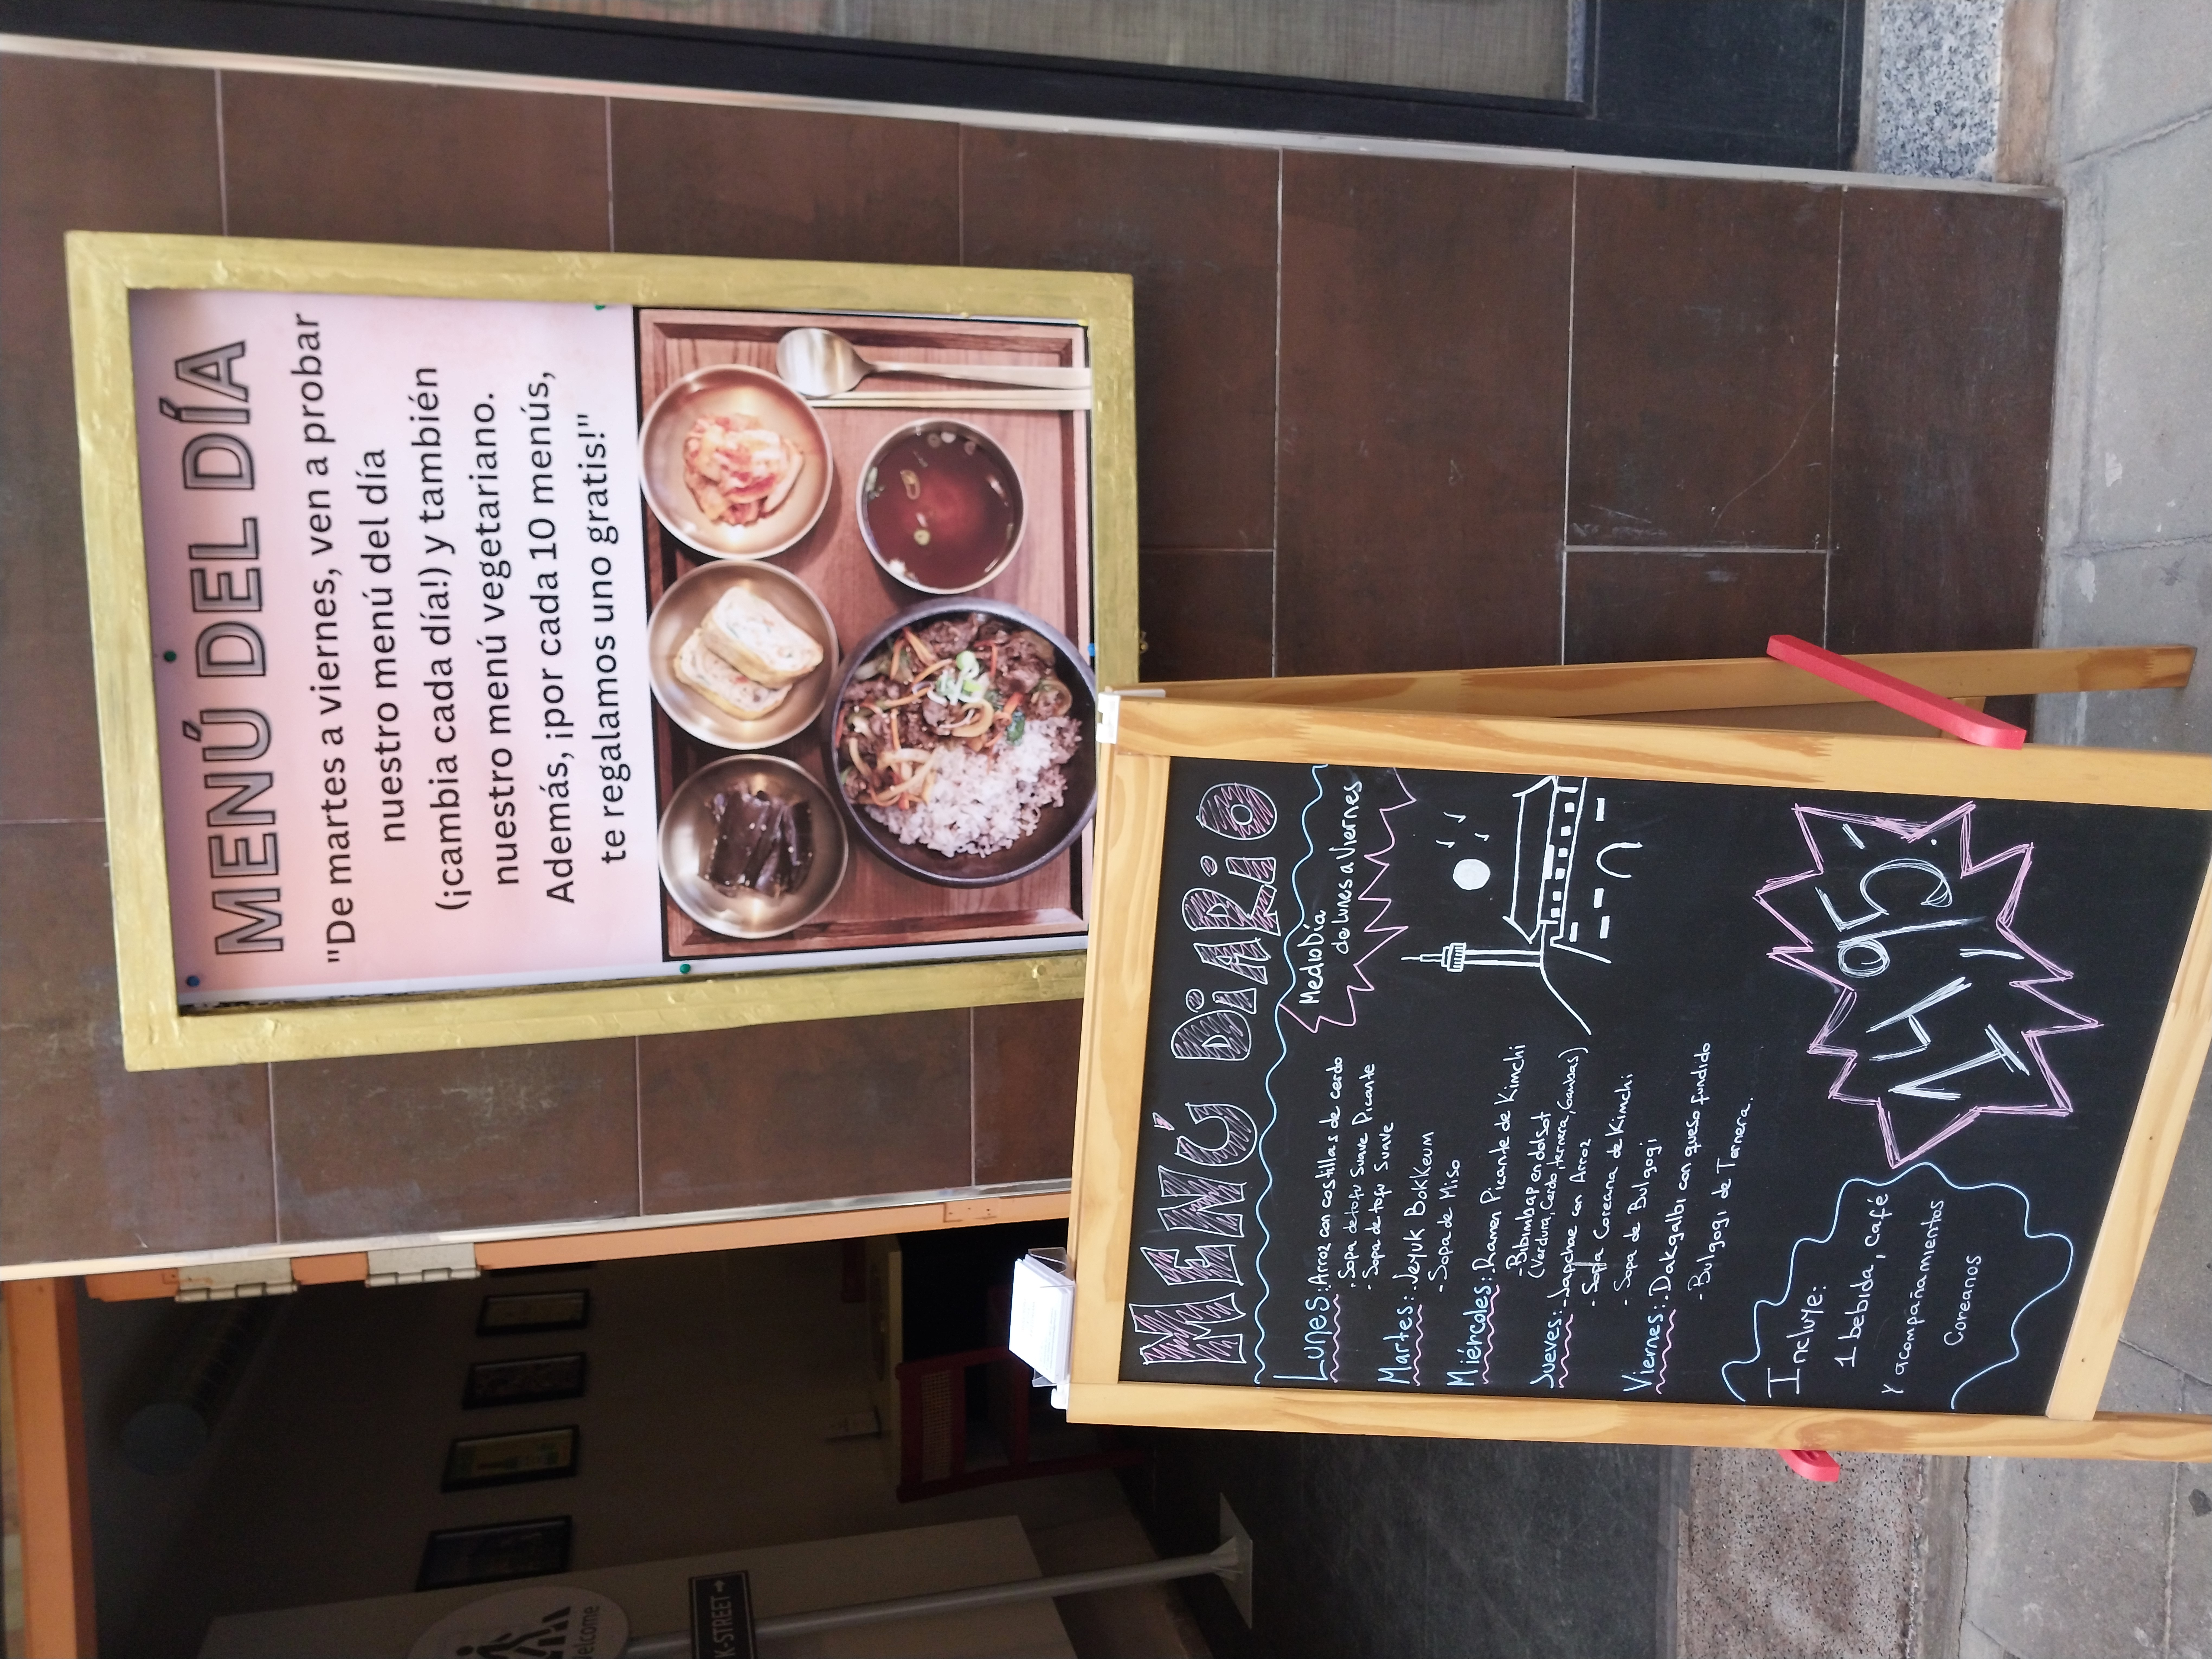 MENÚ DEL DÍA
"De martes a viernes, ven a probar
nuestro menú del día
(¡cambia cada día!) y también
nuestro menú vegetariano.
Además, ¡por cada 10 menús,
te regalamos uno gratis!"
MENÚ DiARiO
MedioDía
de Lunes a Viernes
Lunes: Arroz con costillas de cerdo
- Sopa de tofu Suave Picante
- Sopa de tofu Suave
Martes: Jeyuk Bokkeum
- Sopa de Miso
Miércoles: Ramen Picante de Kimchi
- Bibimbap en dolsot
(Verdura, Cerdo, ternera, Gambas)
Jueves: - Japchae con Arroz
- Sopa Coreana de Kimchi
- Sopa de Bulgogi
Viernes: - Dakgalbi con queso fundido
- Bulgogi de Ternera.
Incluye:
1 bebida, café
y acompañamientos
Coreanos
Welcome
K-STREET →